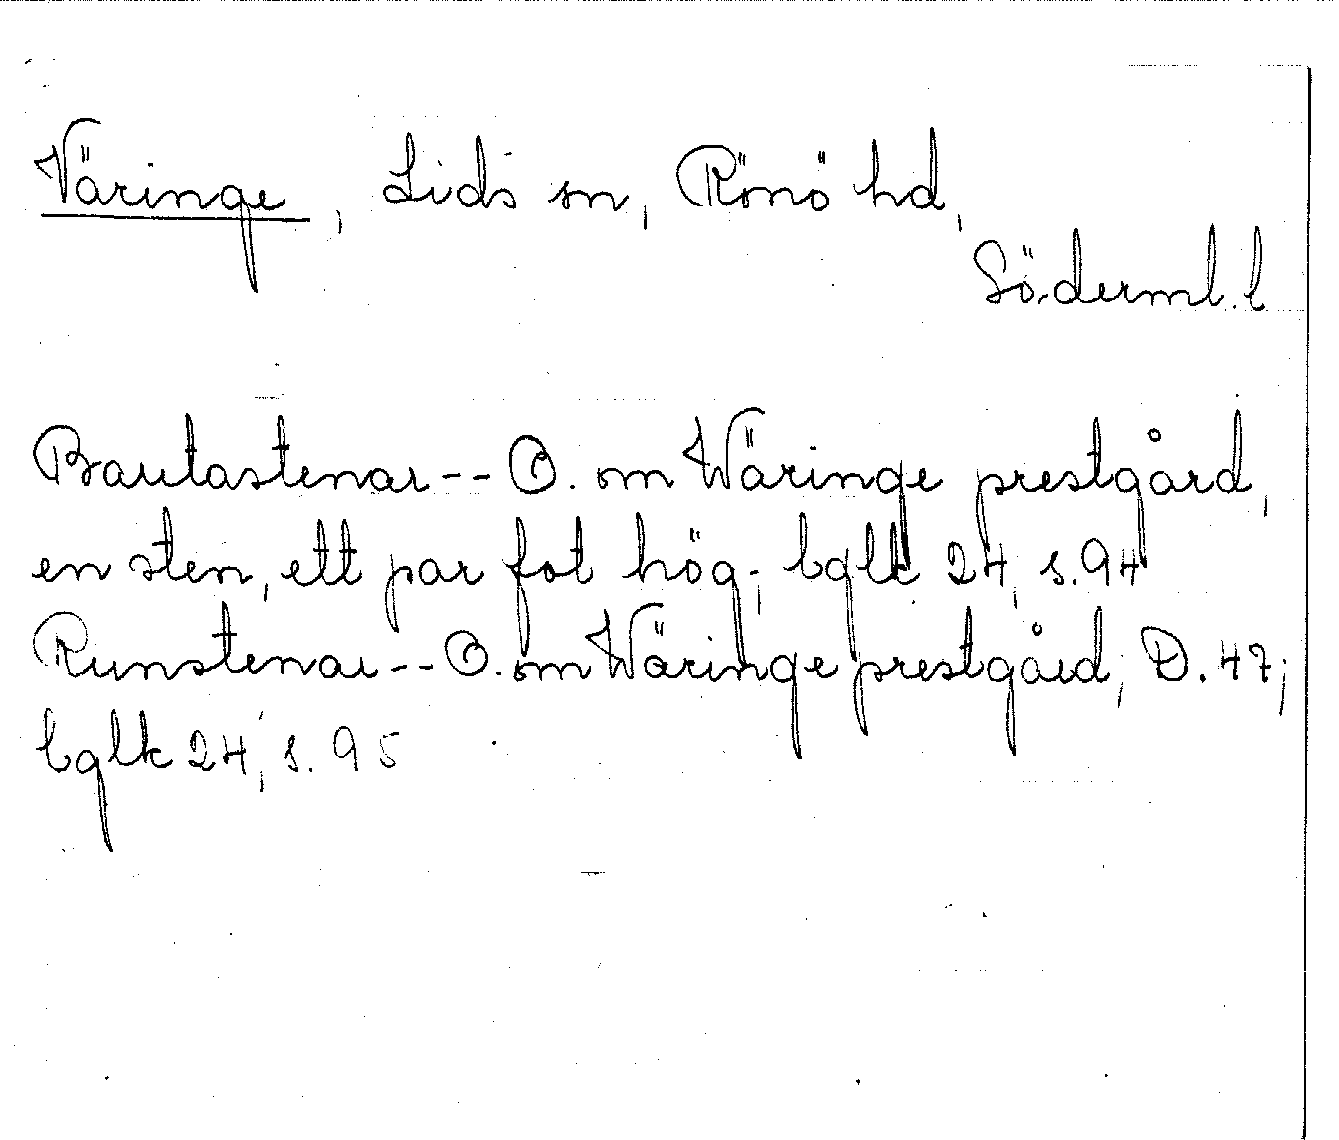 Väringe, Lids sn, Rönö hd,
Söderml. l
Bautastenar -- O. om Wäringe prestgård,
en sten, ett par fot hög; bglk 24, s. 94
Runstenar -- O. om Wäringe prestgård; D. 47;
bglk 24, s. 95